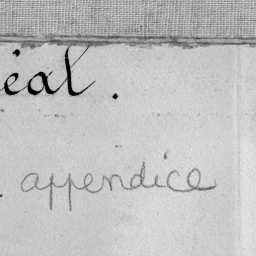 éal.
. appendice